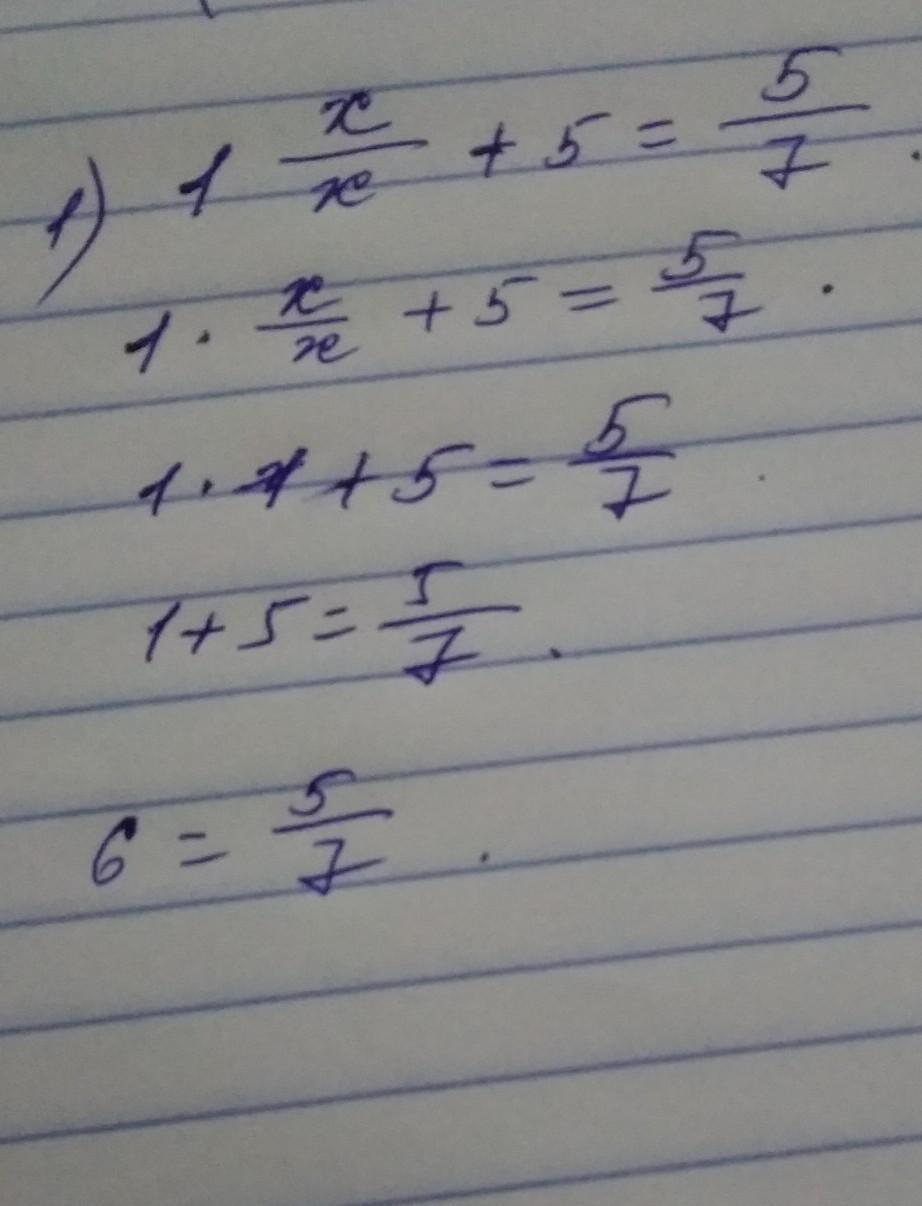 1) 1 x/x + 5 = 5/7 .
1 · x/x + 5 = 5/7 .
1 · 1 + 5 = 5/7 .
1 + 5 = 5/7 .
6 = 5/7 .